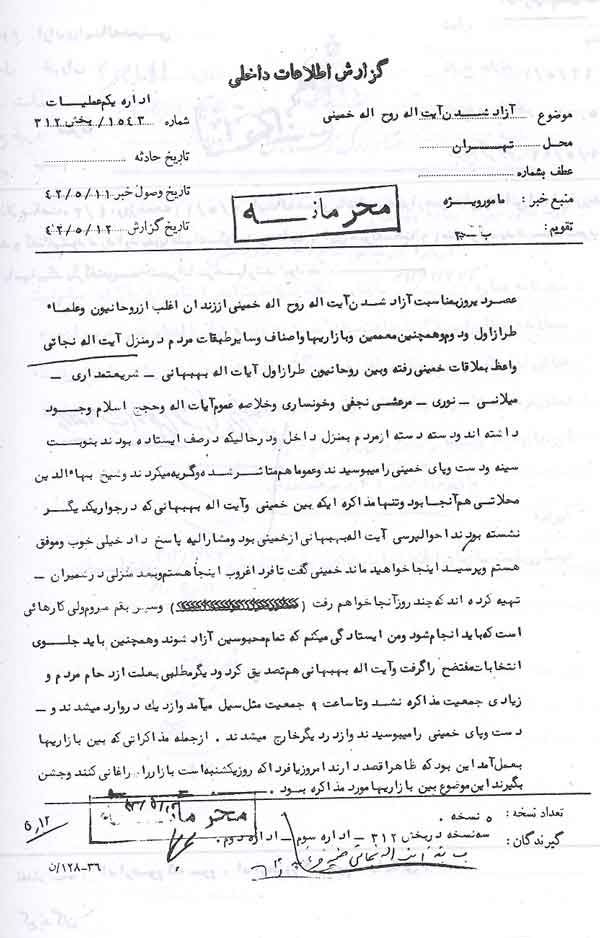 گزارش اطلاعات داخلی
موضوع آزاد شدن آیت اله روح اله خمینی
محل تهران
عطف بشماره
منبع خبر : مامور ویژه
تقویم : ب-
اداره یکم عملیات
شماره ۱۵۴۳/بخش ۳۱۲
تاریخ حادثه
تاریخ وصول خبر ۴۲/۵/۱۱
تاریخ گزارش ۴۲/۵/۱۲
محرمانه
عصر دیروز بمناسبت آزاد شدن آیت اله روح اله خمینی از زندان اغلب از روحانیون وعلماء
طراز اول ودوم وهمچنین معممین وبازاریها واصناف وسایر طبقات مردم در منزل آیت اله نجاتی
واعظ بملاقات خمینی رفته وبین روحانیون طراز اول آیات اله بهبهانی – شریعتمداری –
میلانی – نوری – مرعشی نجفی وخونساری وخلاصه عموم آیات اله وحجج اسلام وجود
داشته اند ودسته دسته از مردم بمنزل داخل ودرحالیکه درصف ایستاده بودند بنوبت
سینه ودست وپای خمینی را میبوسیدند وعموما هم متاثر شده وگریه میکردند وشیخ بهاءالدین
محلاتی هم آنجا بود وتنها مذاکره ایکه بین خمینی وآیت اله بهبهانی که درجوار یکدیگر
نشسته بودند احوالپرسی آیت اله بهبهانی ازخمینی بود ومشارالیه پاسخ داد خیلی خوب وموفق
هستم وپرسید اینجا خواهید ماند خمینی گفت تا فردا غروب اینجا هستم وبعد منزلی درشمیران –
تهیه کرده اند که چند روز آنجا خواهم رفت ( ) وسپس بقم میروم ولی کارهائی
است که باید انجام شود ومن ایستادگی میکنم که تمام محبوسین آزاد شوند وهمچنین باید جلوی
انتخابات مفتضح را گرفت وآیت اله بهبهانی هم تصدیق کرد ودیگر مطلبی بعلت ازدحام مردم و
زیادی جمعیت مذاکره نشد وتا ساعت ۹ جمعیت مثل سیل میآمد واز یک در وارد میشدند و –
دست وپای خمینی را میبوسیدند واز در دیگر خارج میشدند . از جمله مذاکراتی که بین بازاریها
بعمل آمد این بود که ظاهرا قصد دارند امروز یا فردا که روز یکشنبه است بازار را چراغانی کنند وجشن
بگیرند این موضوع بین بازاریها مورد مذاکره بود .
تعداد نسخه : ۵ نسخه .
گیرندگان : سه نسخه در بخش ۳۱۲ – اداره سوم – اداره دوم .
محرمانه
۵/۱۲
۳۶–۱۲۸/ن